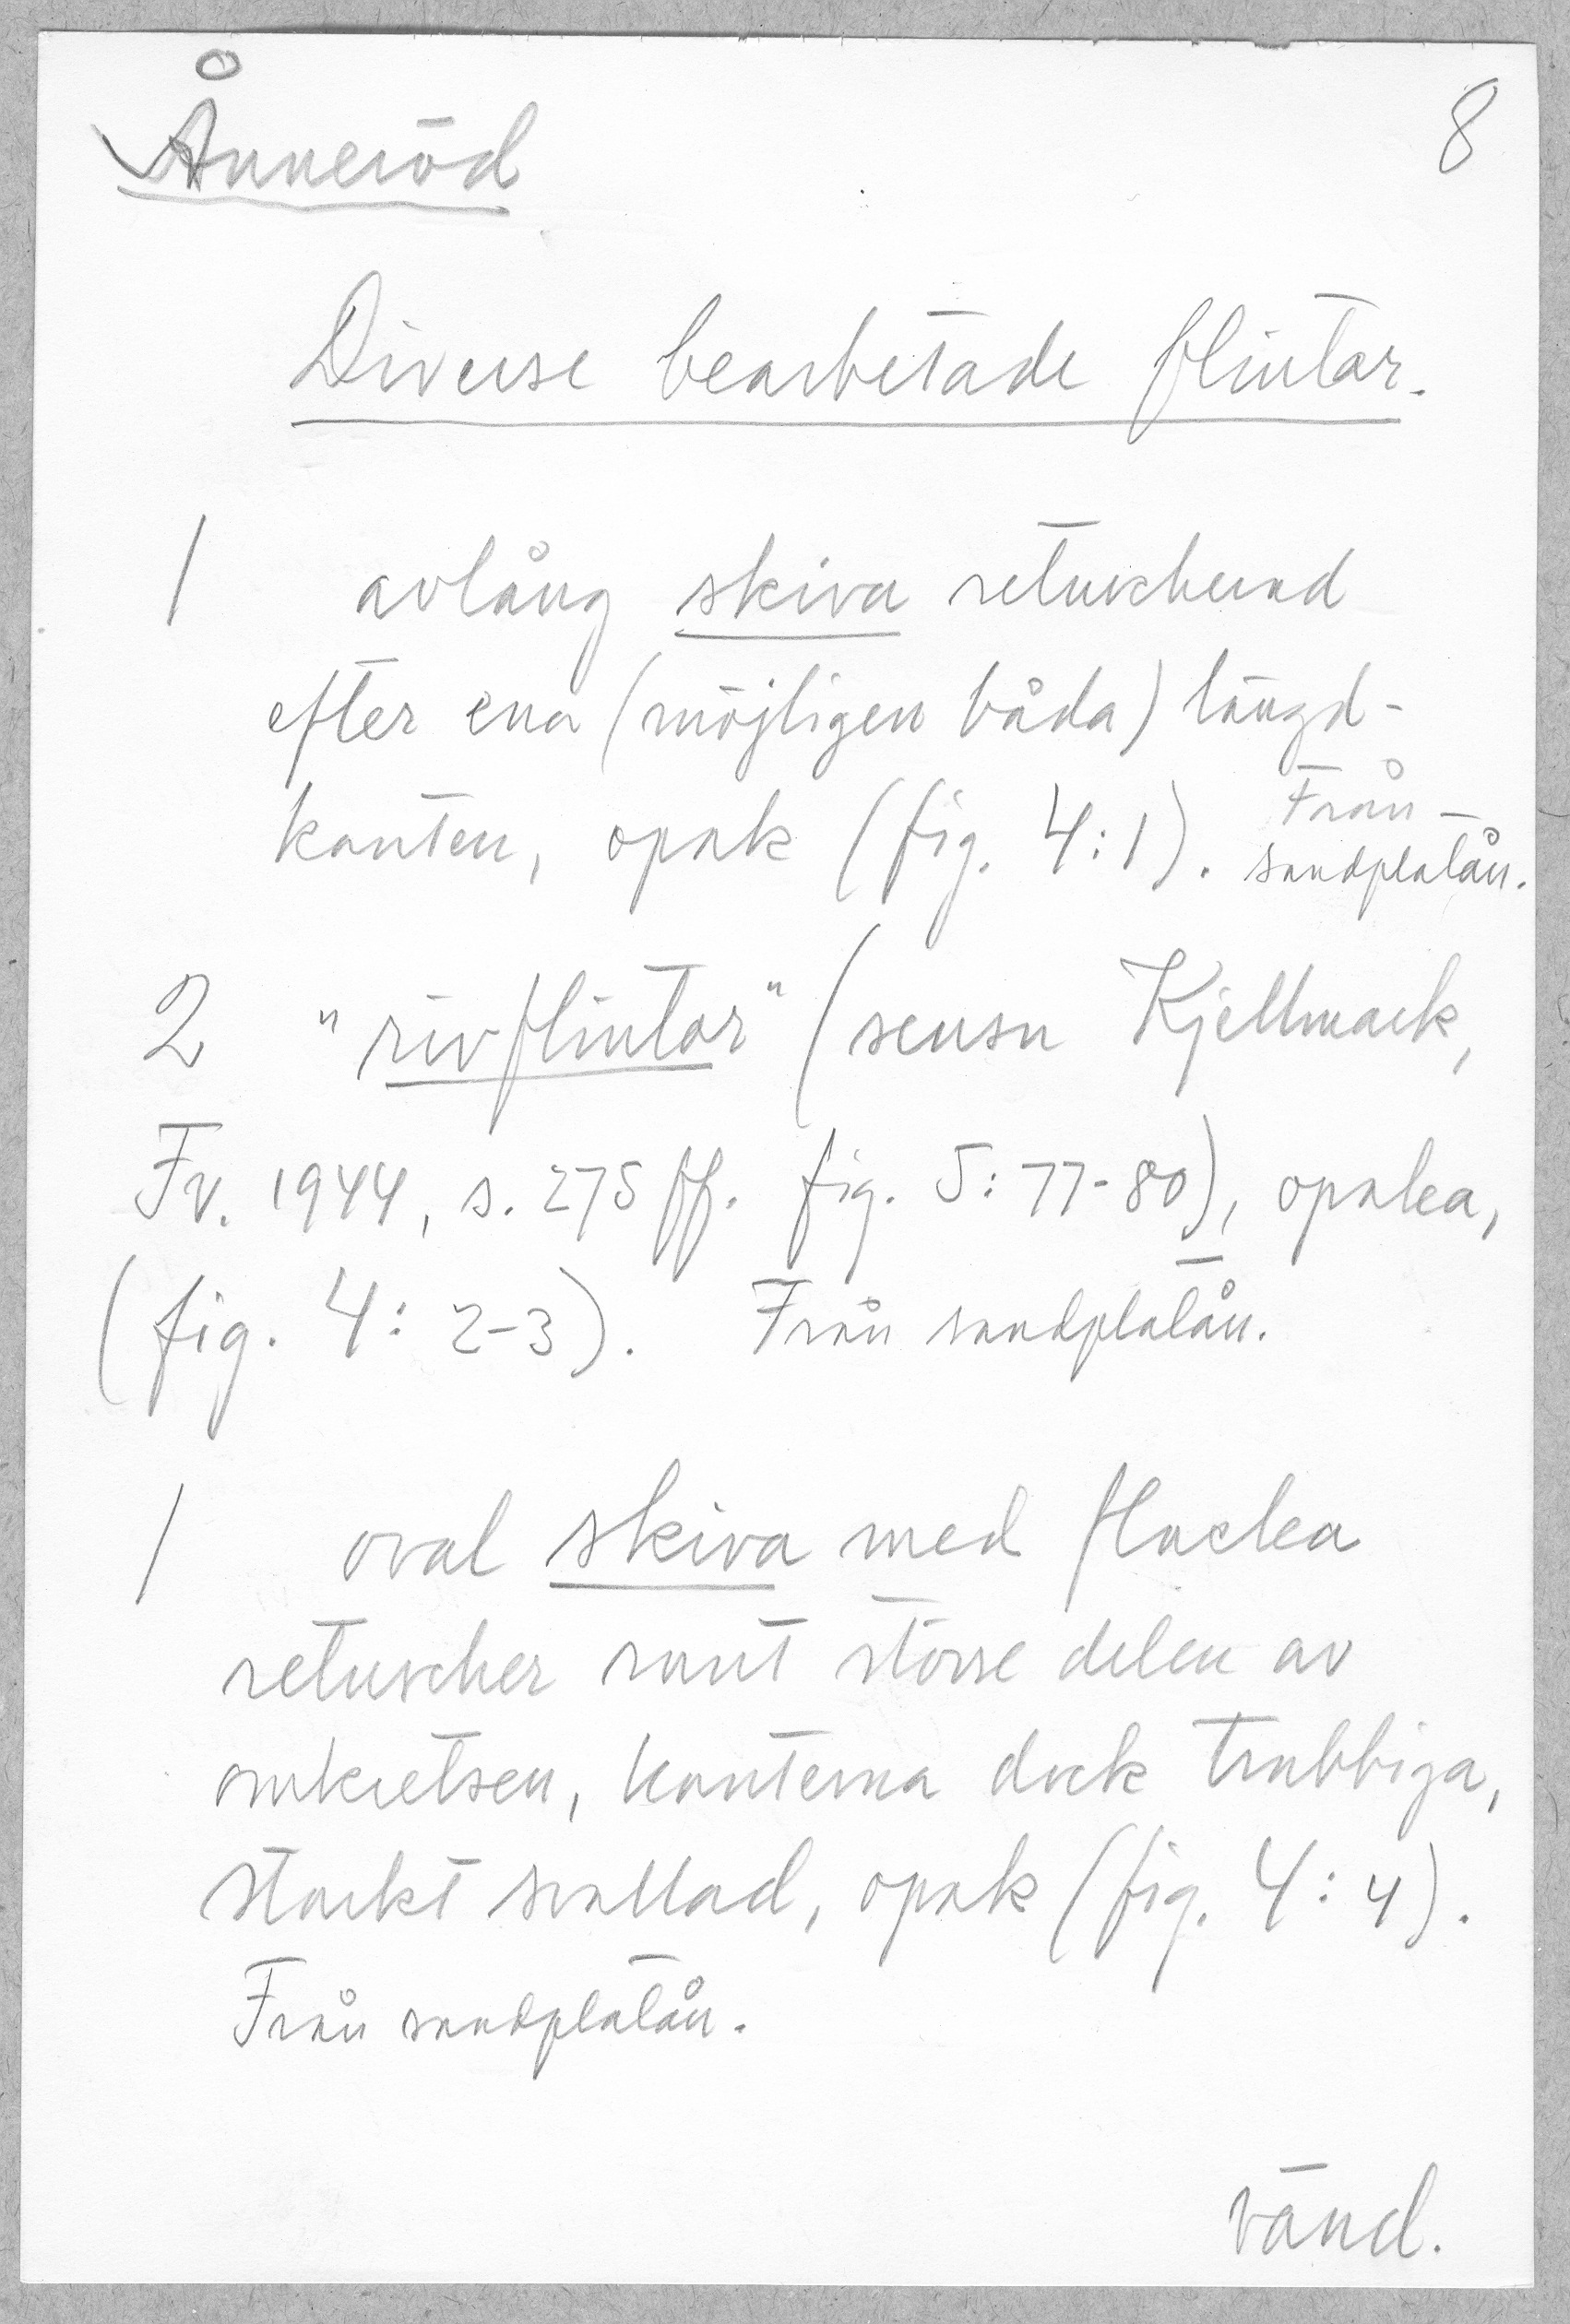 Ånneröd
8
Diverse bearbetade flintor.
1 avlång skiva retuscherad
efter ena (möjligen båda) längd-
kanten, opak (fig. 4:1). Från
sandplatån.
2 "rivflintor" (sensu Kjellmark,
Fv. 1944, s. 275 ff. fig. 5: 77-80), opaka,
(fig. 4: 2-3). Från sandplatån.
1 oval skiva med flacka
retuscher runt större delen av
omkretsen, kanterna dock trubbiga,
starkt svallad, opak (fig. 4: 4).
Från sandplatån.
vänd.